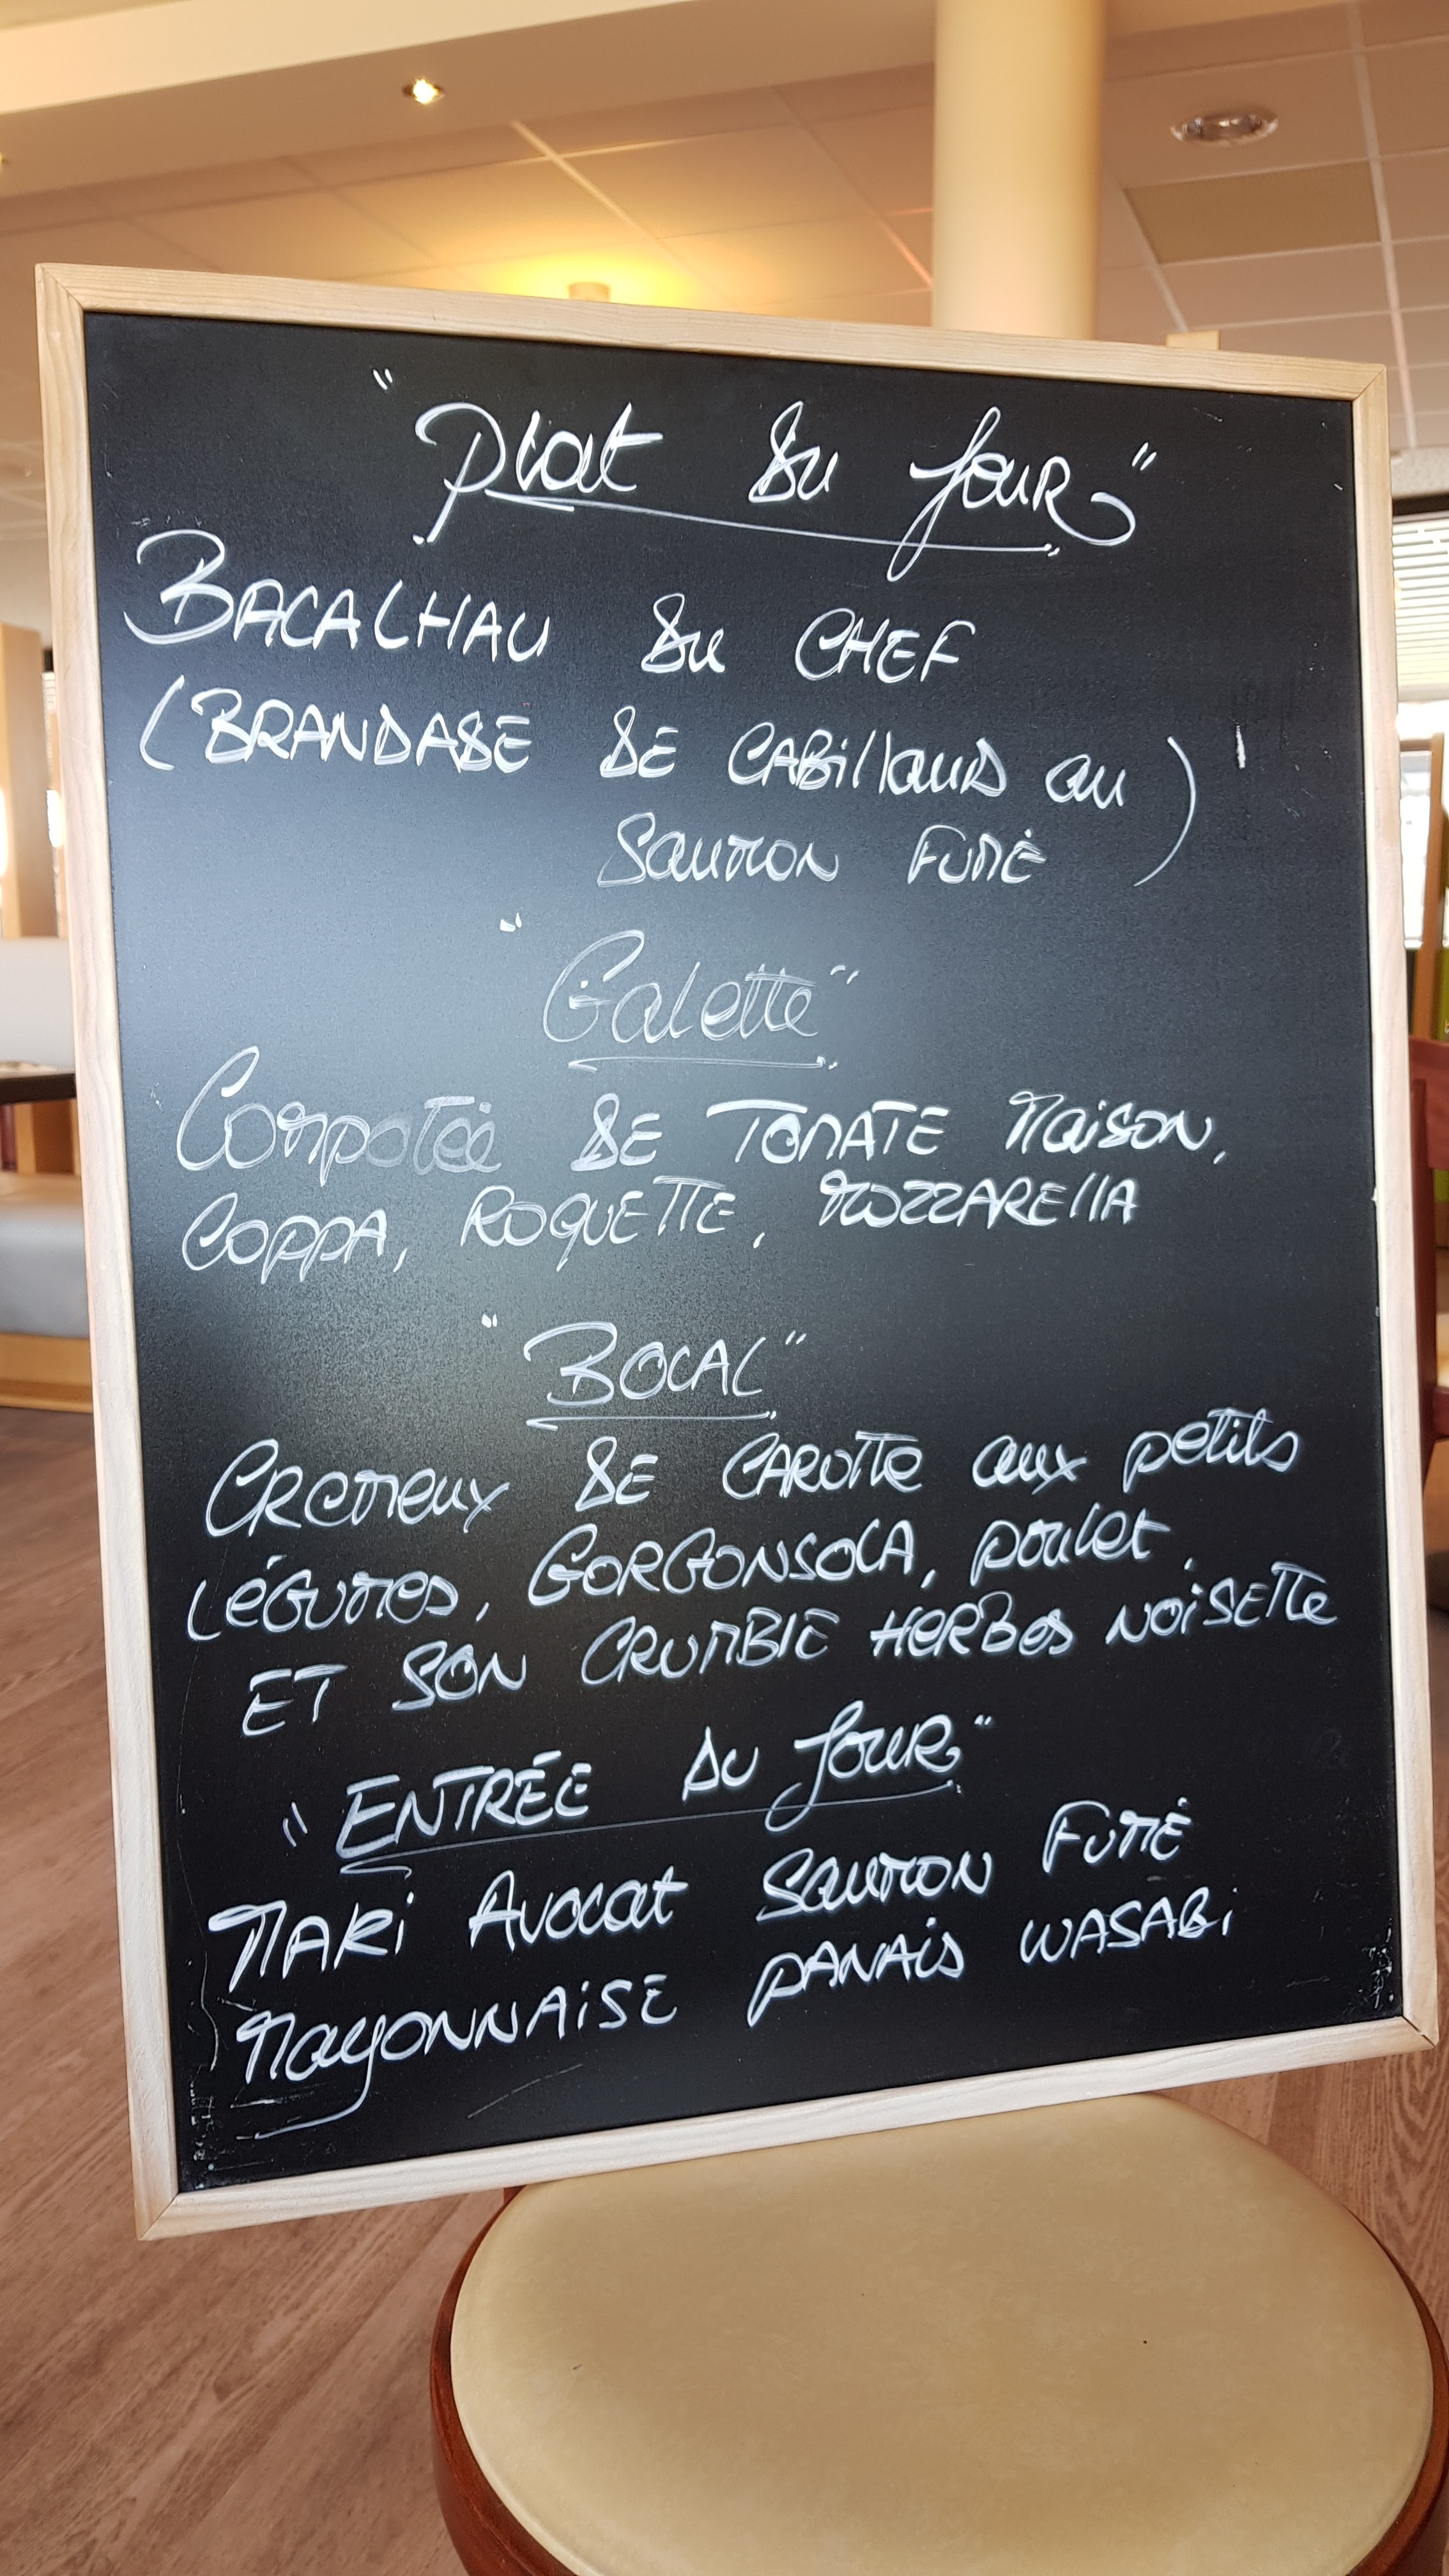 "Plat du Jour"
BACALHAU du CHEF
(BRANDADE DE CABillauD au)
Saumon FUMÉ
"Galette"
Compotée DE TOMATE Maison,
COPPA, ROQUETTE, MOZZARELLA
"BOCAL"
CRemeux DE CAROTTe aux petits
LÉGUMes, GORGONSOLA, poulet,
ET SON CRUMBLE HERBes NOISETTe
"ENTRÉE du JOUR"
MAKi Avocat Saumon FUMÉ
MayONNAiSE PANAiS WASABi